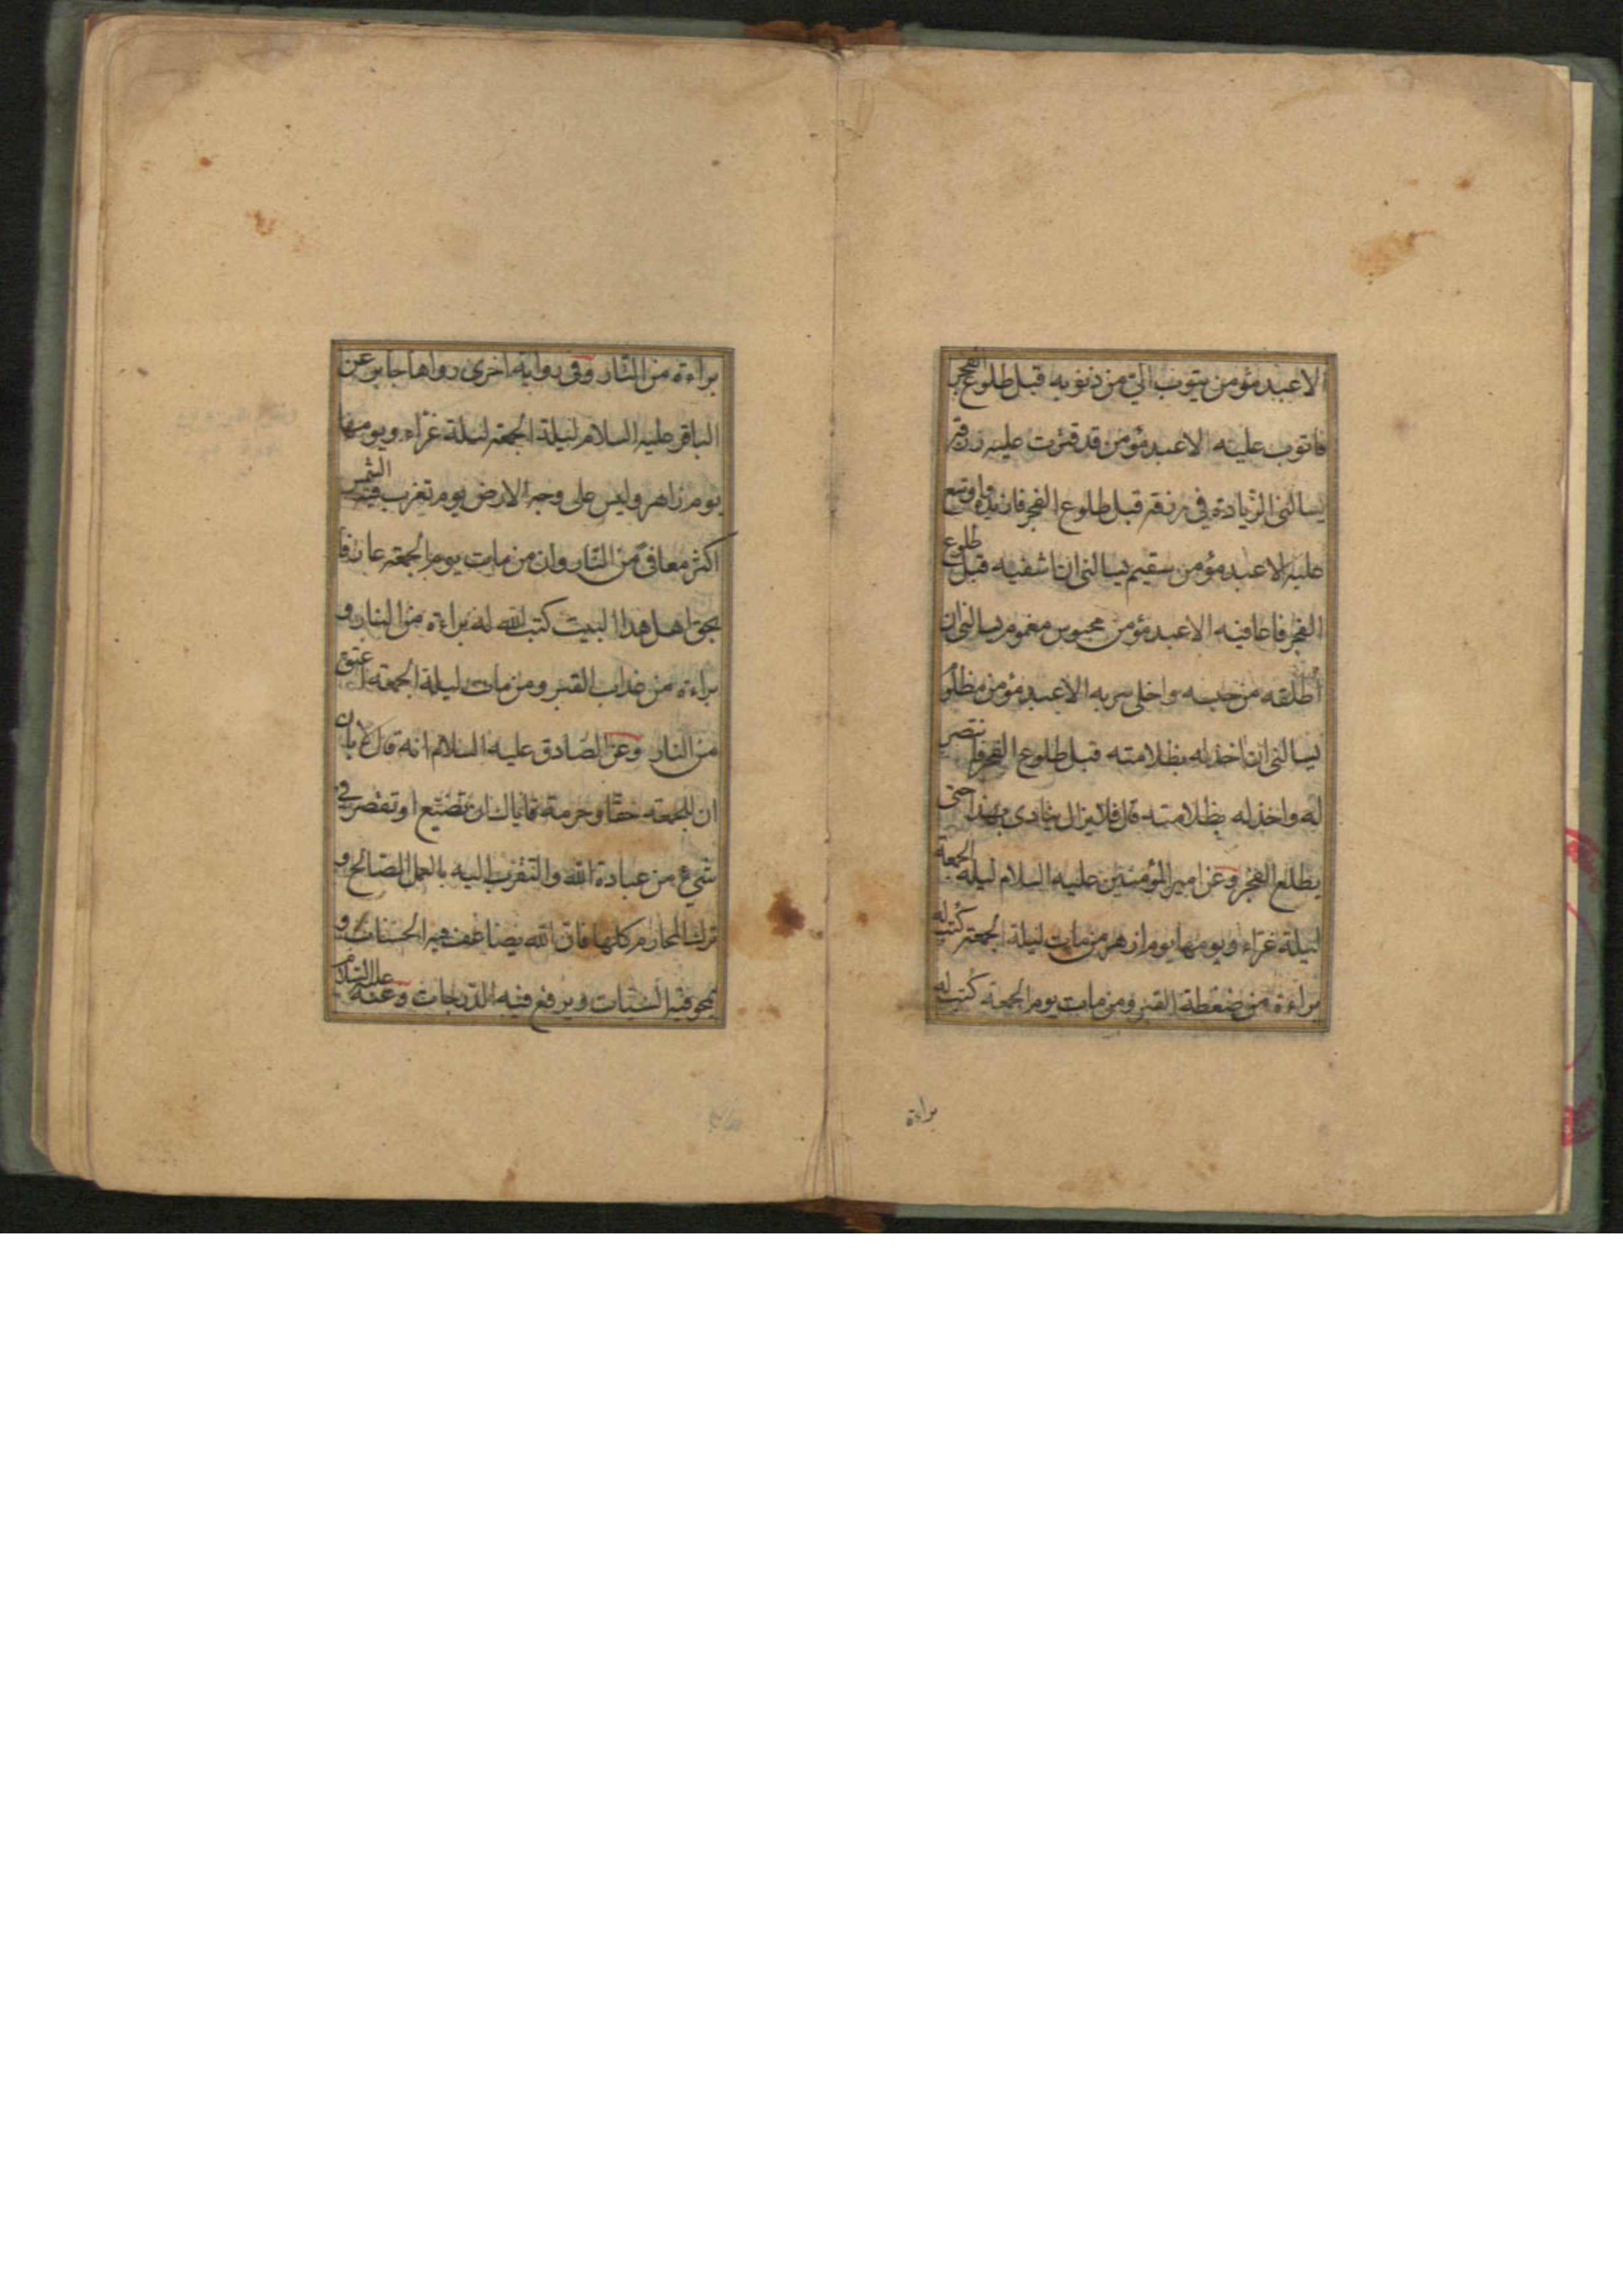 الا عبد مؤمن يتوب الیّ من ذنوبه قبل طلوع الفجر
فاتوب عليه الا عبد مؤمن قد قترت عليه رزقه
يسالنی الزيادة فی رزقه قبل طلوع الفجر فازيده واوسع
عليه الا عبد مؤمن سقيم يسالنی ان اشفيه قبل طلوع
الفجر فاعافيه الا عبد مؤمن محبوس مغموم يسالنی ان
أطلقه من حبسه واخلی سربه الا عبد مؤمن مظلوم
يسالنی ان اخذ له بظلامته قبل طلوع الفجر فانتصر
له واخذ له بظلامته قال فلا يزال ينادی بهذا حتی
يطلع الفجر وعن امير المؤمنين عليه السلام ليلة الجمعة
ليلة غراء ويومها يوم ازهر من مات ليلة الجمعة كتب له
براءة من ضغطة القبر ومن مات يوم الجمعة كتب له
براءة
براءة من النّار وفی رواية اخری رواها جابر عن
الباقر عليه السلام ليلة الجمعة ليلة غرّاء ويومها
يوم زاهر وليس علی وجه الارض يوم تغرب فيه الشمس
اكثر معافیً من النّار وان من مات يوم الجمعة عارفا
بحق اهل هذا البيت كتب الله له براءة من النار و
براءة من عذاب القبر ومن مات ليلة الجمعة اعتق
من النار وعن الصّادق عليه السلام انه قال لابان
ان للجمعة حقّا وحرمة فاياك ان تضيّع او تقصر فی
شیء من عبادة الله والتقرب اليه بالعمل الصّالح و
ترك المحارم كلها فانّ الله يضاعف فيه الحسنات و
يمحو فيه السّيئات ويرفع فيه الدّرجات وعنه عليه السّلام